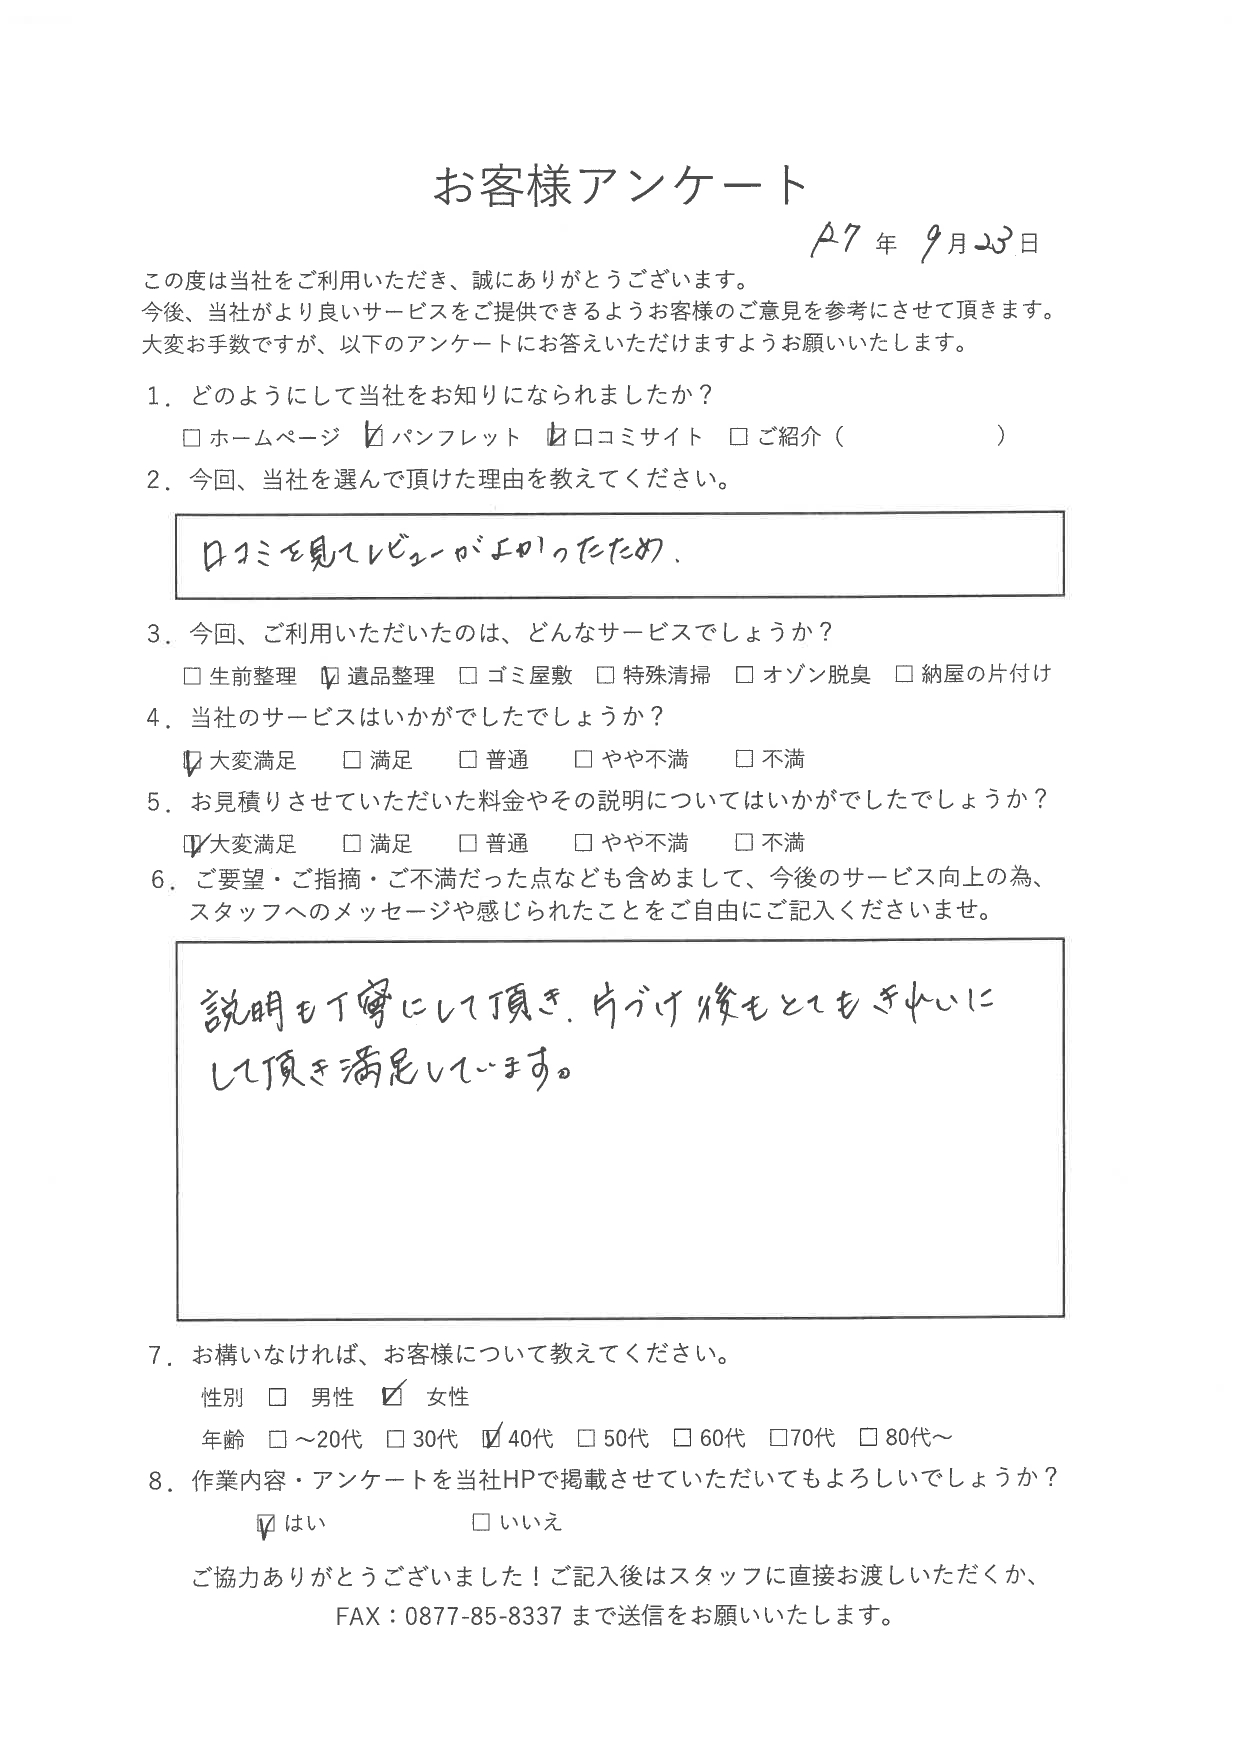 お客様アンケート
R7 年 9月23日
この度は当社をご利用いただき、誠にありがとうございます。
今後、当社がより良いサービスをご提供できるようお客様のご意見を参考にさせて頂きます。
大変お手数ですが、以下のアンケートにお答えいただけますようお願いいたします。
1．どのようにして当社をお知りになられましたか？
□ホームページ ☑パンフレット ☑口コミサイト □ご紹介（ ）
2．今回、当社を選んで頂けた理由を教えてください。
口コミを見てレビューがよかったため.
3．今回、ご利用いただいたのは、どんなサービスでしょうか？
□生前整理 ☑遺品整理 □ゴミ屋敷 □特殊清掃 □オゾン脱臭 □納屋の片付け
4．当社のサービスはいかがでしたでしょうか？
☑大変満足 □満足 □普通 □やや不満 □不満
5．お見積りさせていただいた料金やその説明についてはいかがでしたでしょうか？
☑大変満足 □満足 □普通 □やや不満 □不満
6．ご要望・ご指摘・ご不満だった点なども含めまして、今後のサービス向上の為、
スタッフへのメッセージや感じられたことをご自由にご記入くださいませ。
説明も丁寧にして頂き、片づけ後もとてもきれいに
して頂き満足しています。
7．お構いなければ、お客様について教えてください。
性別 □ 男性 ☑ 女性
年齢 □～20代 □30代 ☑40代 □50代 □60代 □70代 □80代～
8．作業内容・アンケートを当社HPで掲載させていただいてもよろしいでしょうか？
☑はい □いいえ
ご協力ありがとうございました！ご記入後はスタッフに直接お渡しいただくか、
FAX：0877-85-8337 まで送信をお願いいたします。